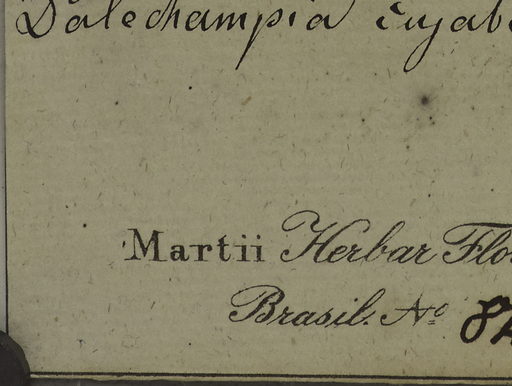 Dalechampia cuyab
Martii Herbar Flo
Brasil. No 8